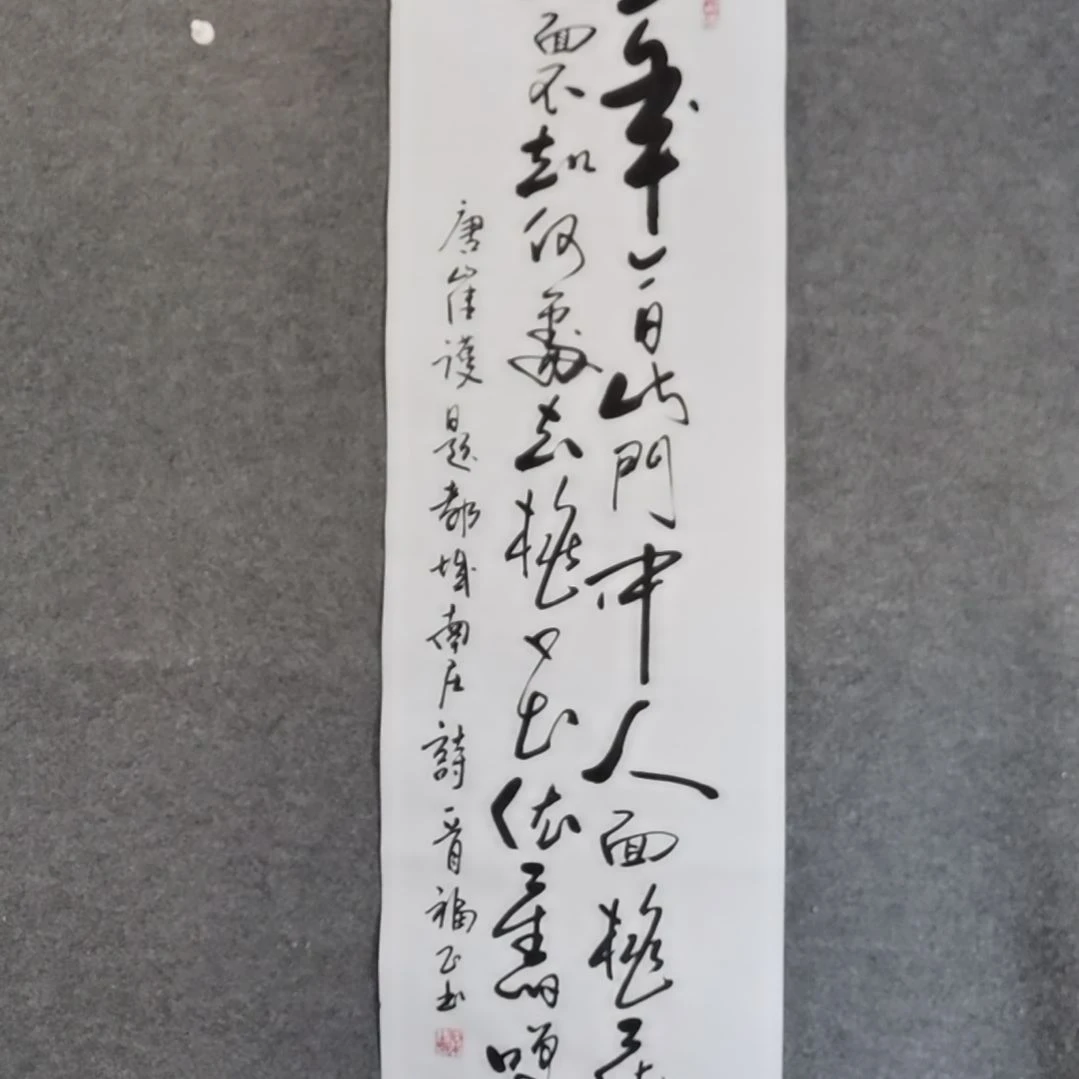 年今日此門中人面桃
面不知何處去桃花依舊
唐崔護題都城南居詩 福正书